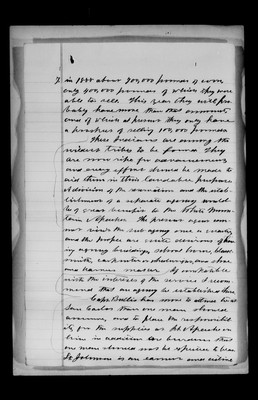 7. in 1888 about 700,000 pounds of corn
only 400,000 pounds of which they were
able to sell. This year they will pro-
bably have more than that amount
one of which at present they only have
a promise of selling 100,000 pounds
These Indians are among the
wildest tribes to be found. They
are now ripe for advancement
and every effort should be made to
aid them in their laudable purpose
A division of the reservation and the estab-
lishment of a separate agency would
be of great benefit to the White Moun-
tain Apaches. The present agent can-
not visit the sub agency once a month
and the people are quite desirous of hav-
ing agency buildings, school house, black-
smith, carpenter, and shoe
and harness maker. If compatible
with the interests of the service I recom-
mend that an agency be established there
Capt Bullis has more to attend to at
San Carlos than one man should
assume, and to place the responsibil-
ity for the supplies at Ft Apache on
him in addition are burdens that
one man should not be expected to bear
is an earnest and active